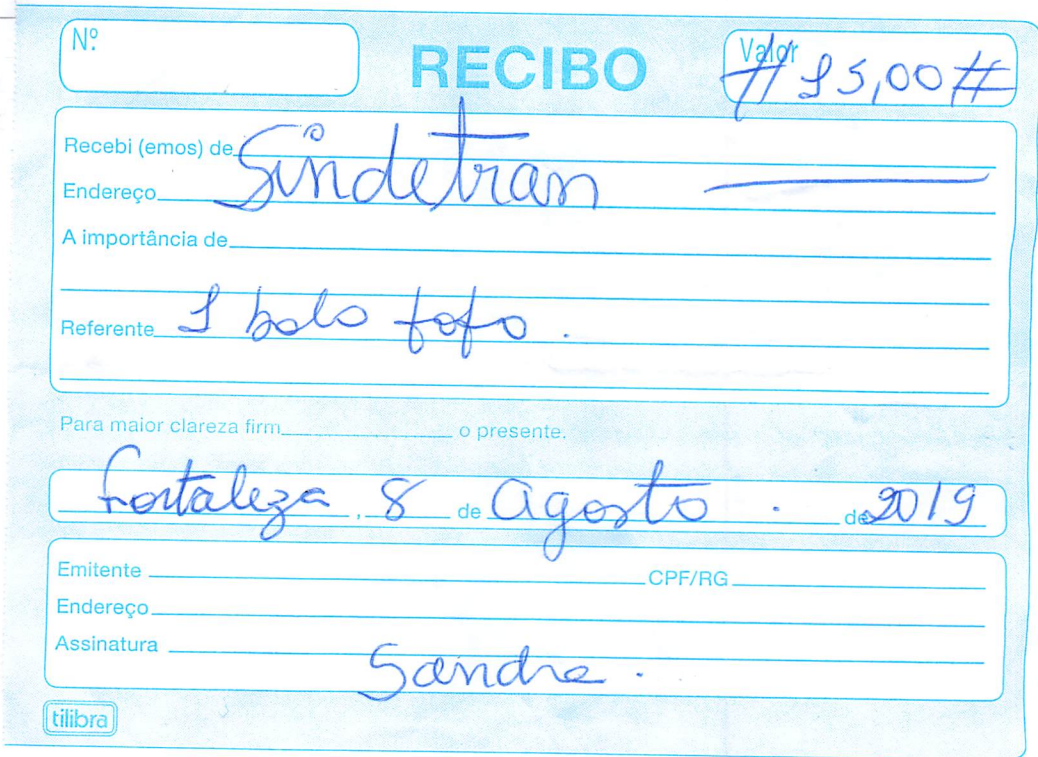 Nº
RECIBO
Valor
# 15,00 #
Recebi (emos) de Sindetran
Endereço
A importância de
Referente 1 bolo fofo.
Para maior clareza firm o presente.
Fortaleza, 8 de Agosto. de 2019
Emitente CPF/RG
Endereço
Assinatura Sandra.
tilibra